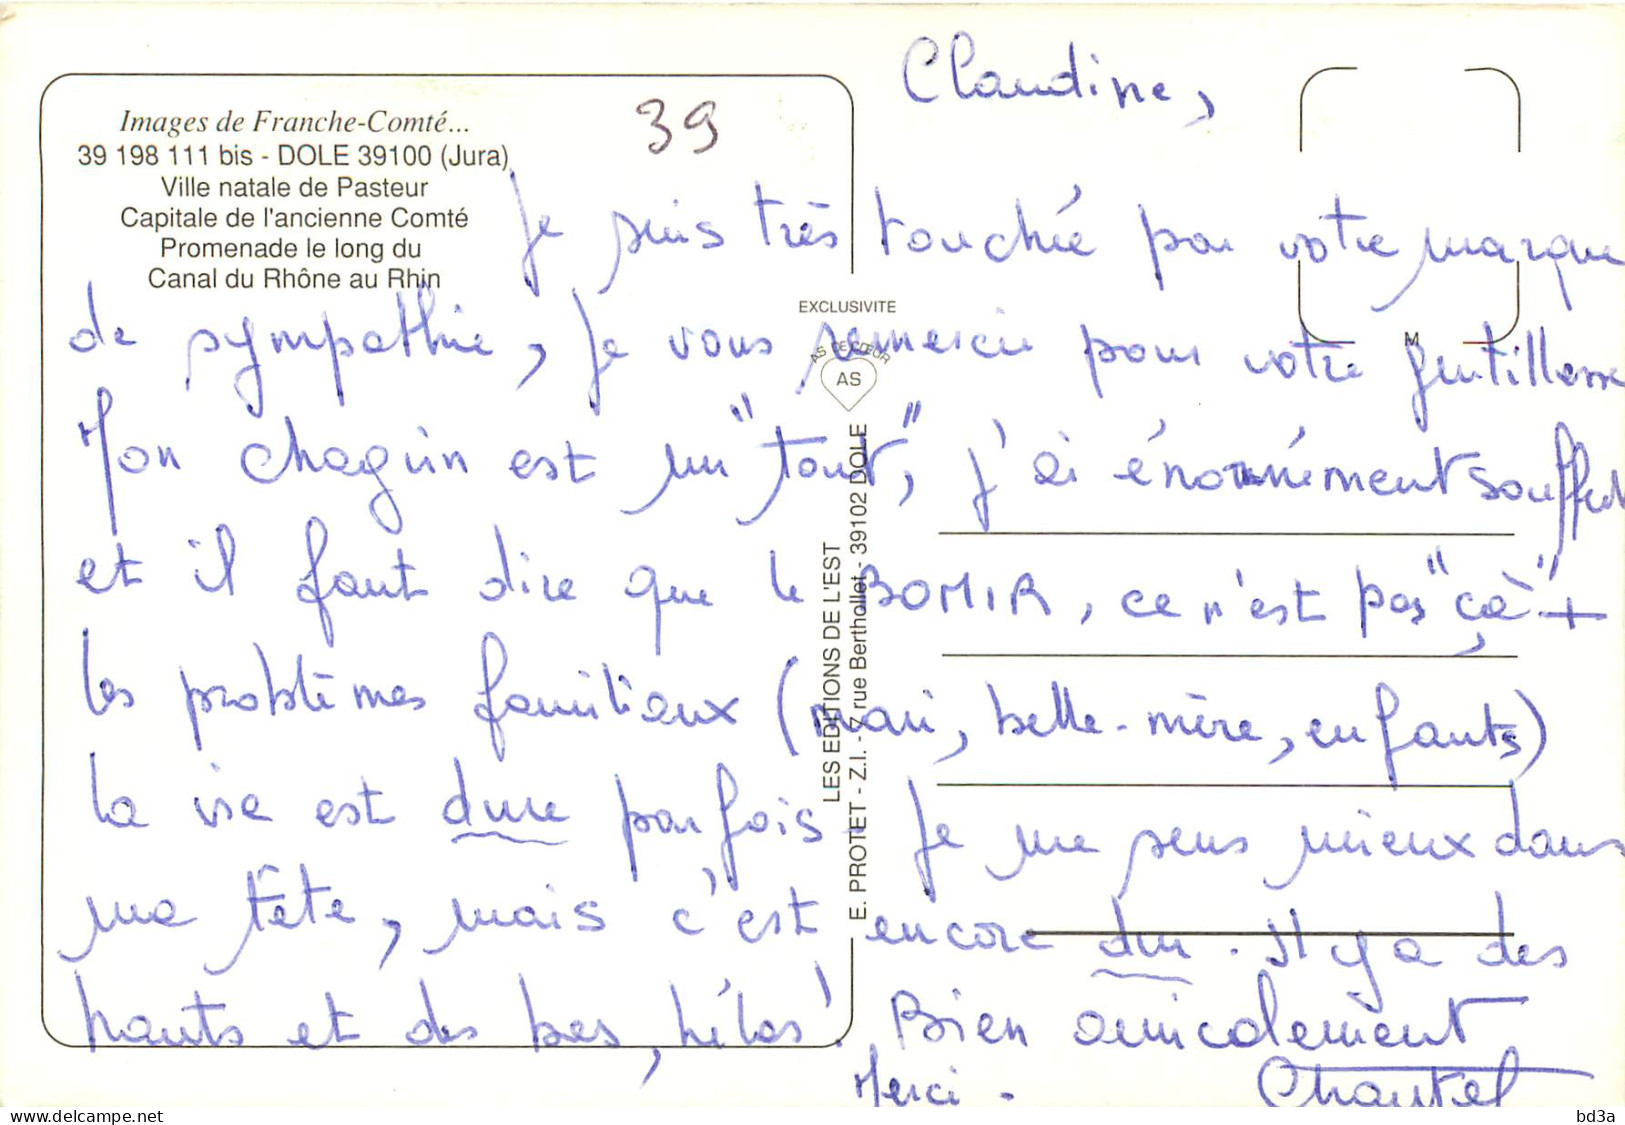 Images de Franche-Comté...
39 198 111 bis - DOLE 39100 (Jura)
Ville natale de Pasteur
Capitale de l'ancienne Comté
Promenade le long du
Canal du Rhône au Rhin
39
EXCLUSIVITE
AS DE CŒUR
AS
LES EDITIONS DE L'EST
E. PROTET - Z.I. - 7 rue Berthollet - 39102 DOLE
M
Claudine,
Je suis très touchée par votre marque
de sympathie, je vous remercie pour votre gentillesse
Mon chagrin est un "tout", j'ai énormément souffert
et il faut dire que le BOMIR, ce n'est pas "çà" +
les problèmes familiaux (mari, belle-mère, enfants)
La vie est dure parfois. Je me sens mieux dans
ma tête, mais c'est encore dur. Il y a des
hauts et des bas, hélas! Bien amicalement
Merci - Chantal
delcampe.net
bd3a